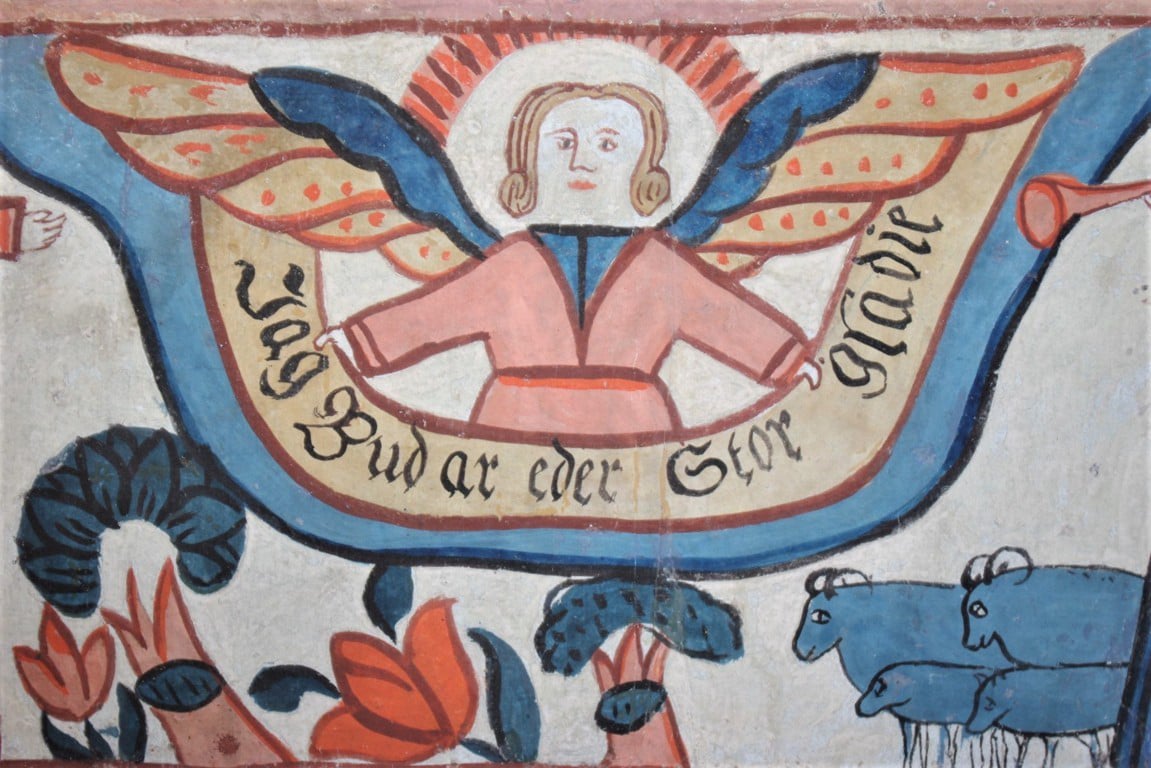 Iag Bud ar eder Stor glädie